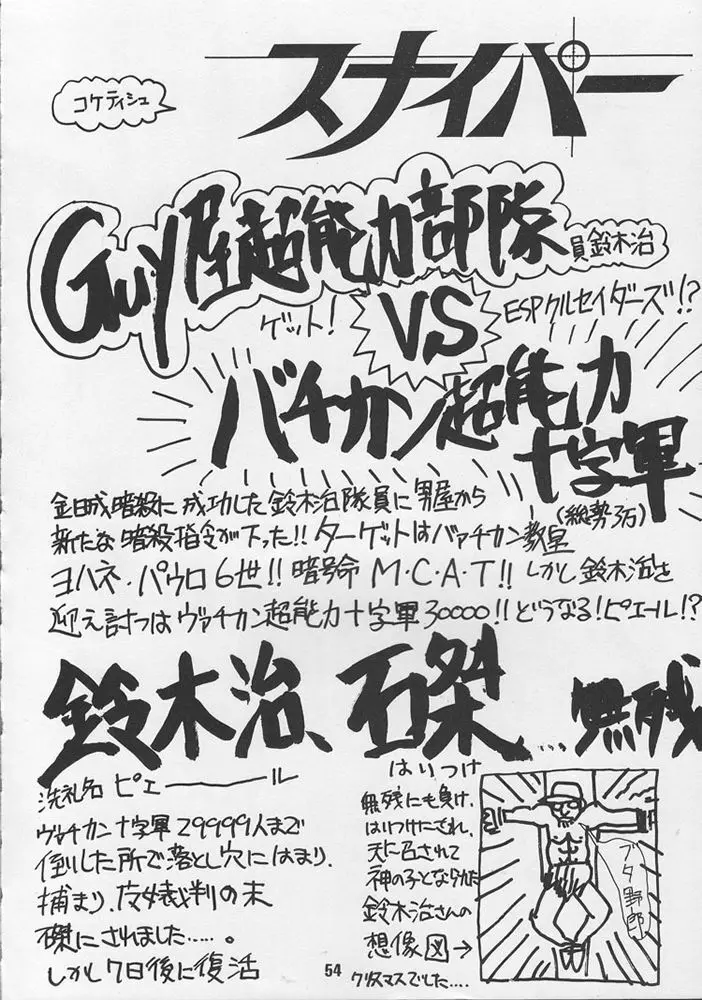 コケティシュ
スナイパー
Guy屋超能力部隊
員鈴木治
ゲット!
VS
ESPクルセイダーズ!?
バチカン超能力
十字軍
(総勢3万)
金日成暗殺に成功した鈴木治隊員に男屋から
新たな暗殺指令が下った!!ターゲットはバァチカン教皇
ヨハネ・パウロ6世!!暗号命M・C・A・T!!しかし鈴木治を
迎え討つはヴァチカン超能力十字軍30000!!どうなる!ピエール!?
鈴木治、石桀…無残
はりつけ
洗礼名 ピエール
ヴァチカン十字軍29999人まで
倒した所で落とし穴にはまり、
捕まり、魔女裁判の末
磔にされました……。
しかし7日後に復活
無残にも負け、
はりつけにされ、
天に召されて
神の子となられた
鈴木治さんの
想像図→
クリスマスでした….
ブタ野郎
54